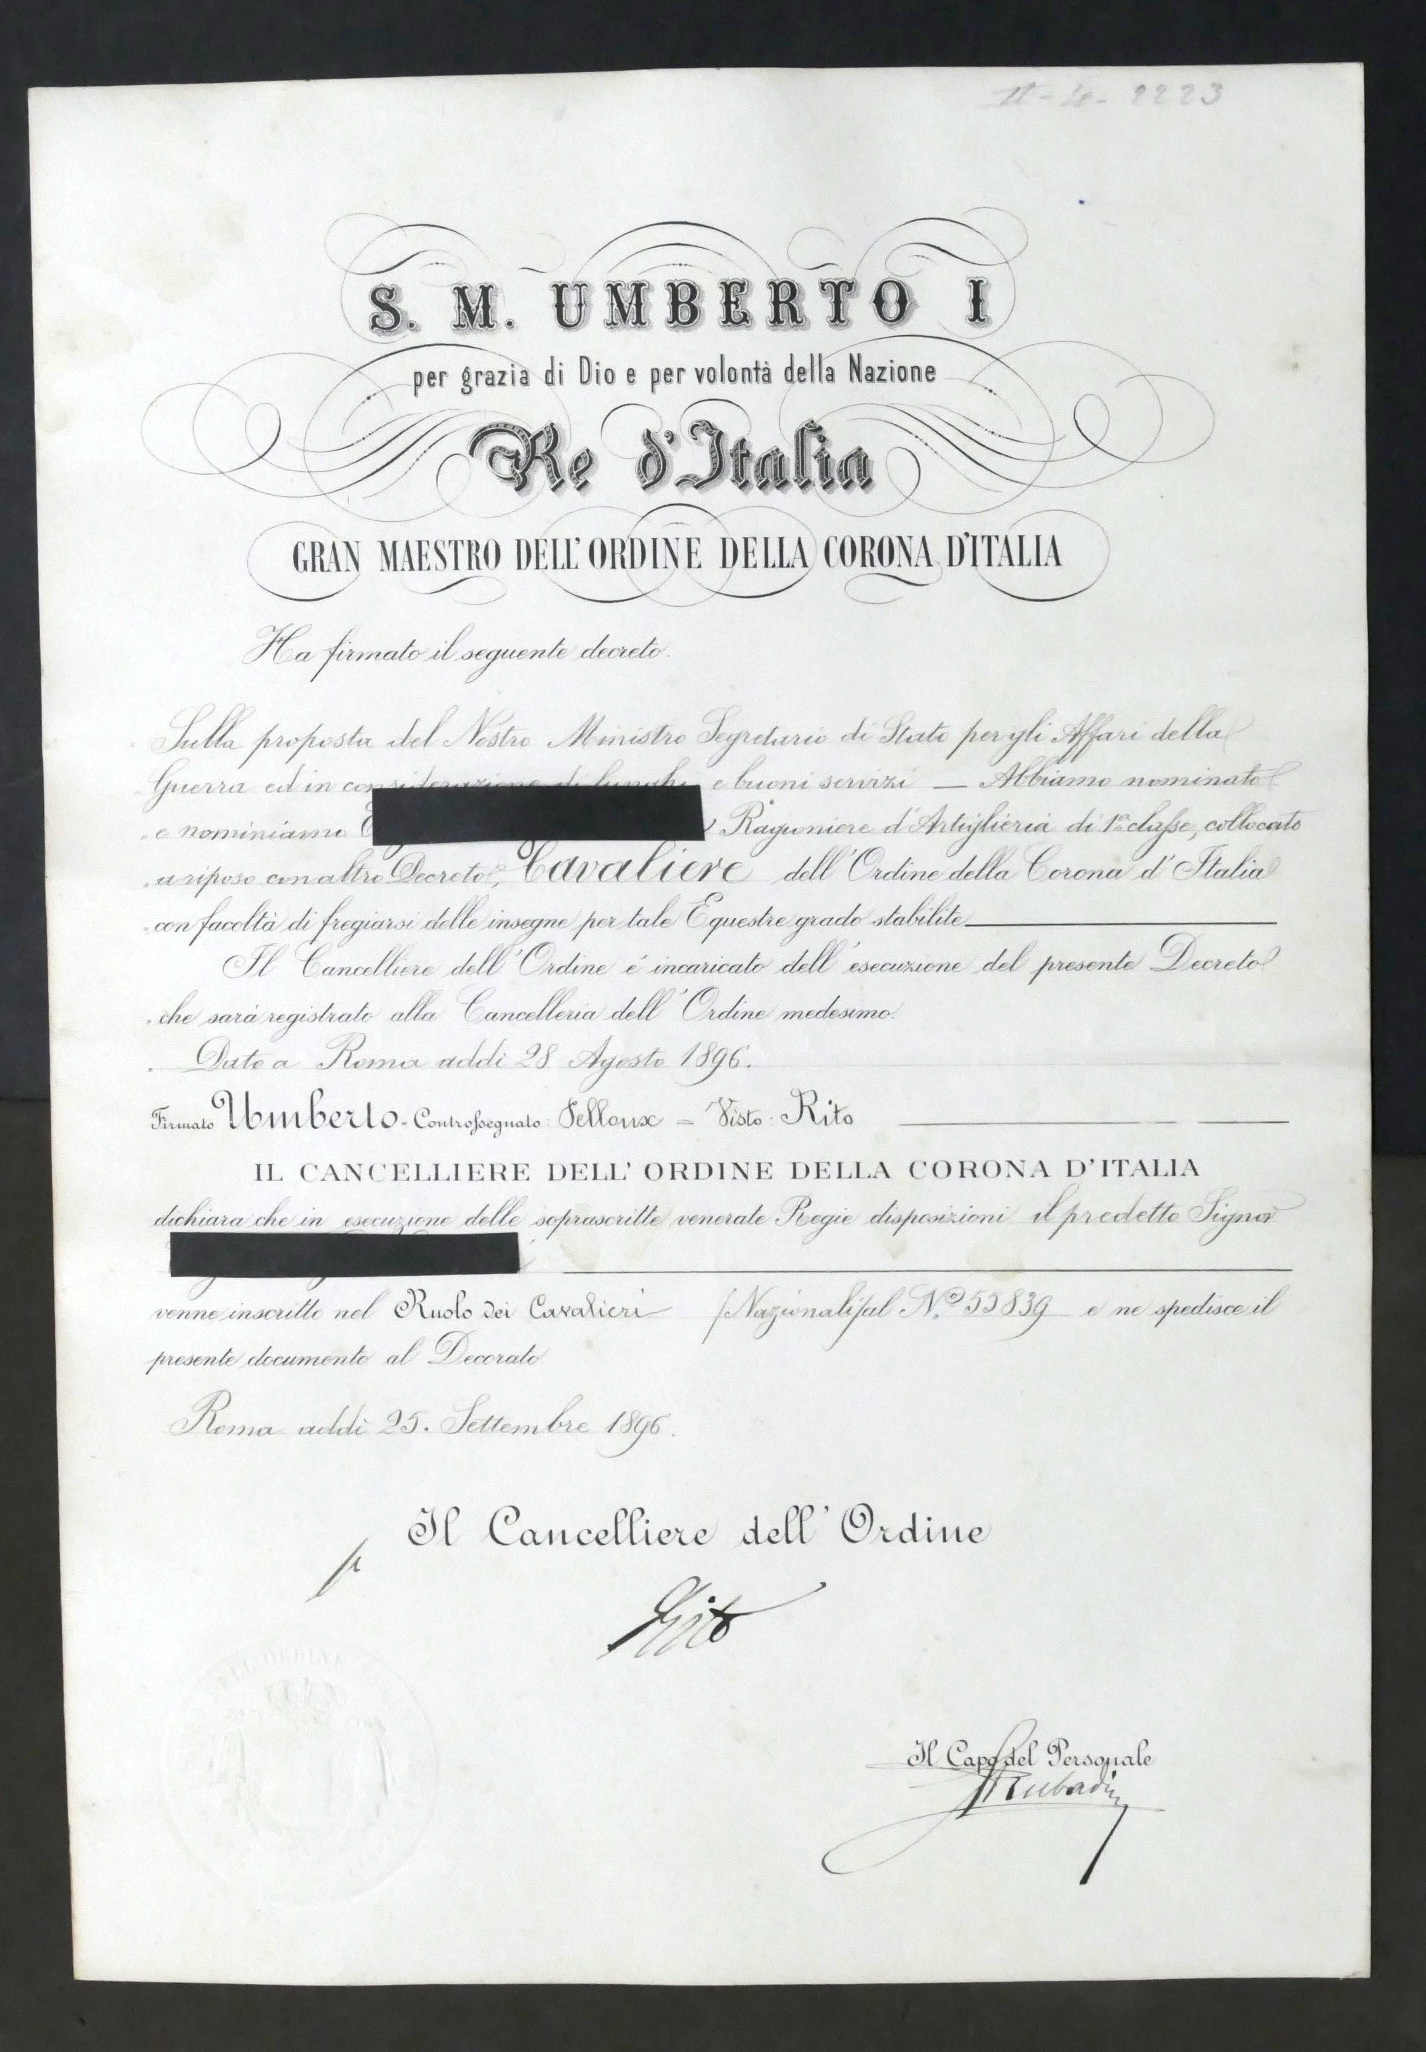 S. M. UMBERTO I
per grazia di Dio e per volontà della Nazione
Re d'Italia
GRAN MAESTRO DELL'ORDINE DELLA CORONA D'ITALIA
Ha firmato il seguente decreto.
Sulla proposta del Nostro Ministro Segretario di Stato per gli Affari della
Guerra ed in considerazione di lunghi e buoni servizi — Abbiamo nominato
e nominiamo Ragioniere d'Artiglieria di 1ª classe, collocato
a riposo con altro Decreto, Cavaliere dell'Ordine della Corona d'Italia
con facoltà di fregiarsi delle insegne per tale Equestre grado stabilite
Il Cancelliere dell'Ordine é incaricato dell'esecuzione del presente Decreto
che sarà registrato alla Cancelleria dell'Ordine medesimo.
Dato a Roma addì 28 Agosto 1896.
Firmato Umberto - Controssegnato: Pelloux = Visto: Rito
IL CANCELLIERE DELL'ORDINE DELLA CORONA D'ITALIA
dichiara che in esecuzione delle soprascritte venerate Regie disposizioni il predetto Signor
venne inscritto nel Ruolo dei Cavalieri (Nazionali) al N.º 53839 e ne spedisce il
presente documento al Decorato
Roma addì 25. Settembre 1896.
Il Cancelliere dell'Ordine
p
Rito
Il Capo del Personale